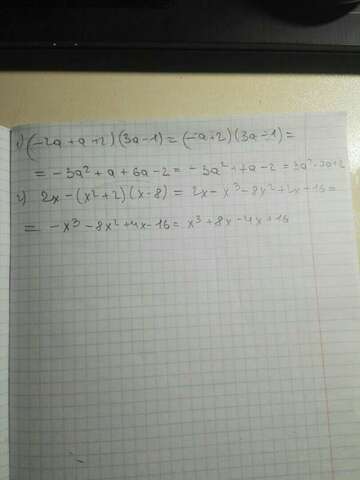 1) (-2a + a + 2)(3a-1) = (-a+2)(3a-1) =
= -3a² + a + 6a - 2 = -3a² + 7a - 2 = 3a² - 7a + 2
2) 2x - (x² + 2)(x - 8) = 2x - x³ - 8x² + 2x - 16 =
= -x³ - 8x² + 4x - 16 = x³ + 8x - 4x + 16